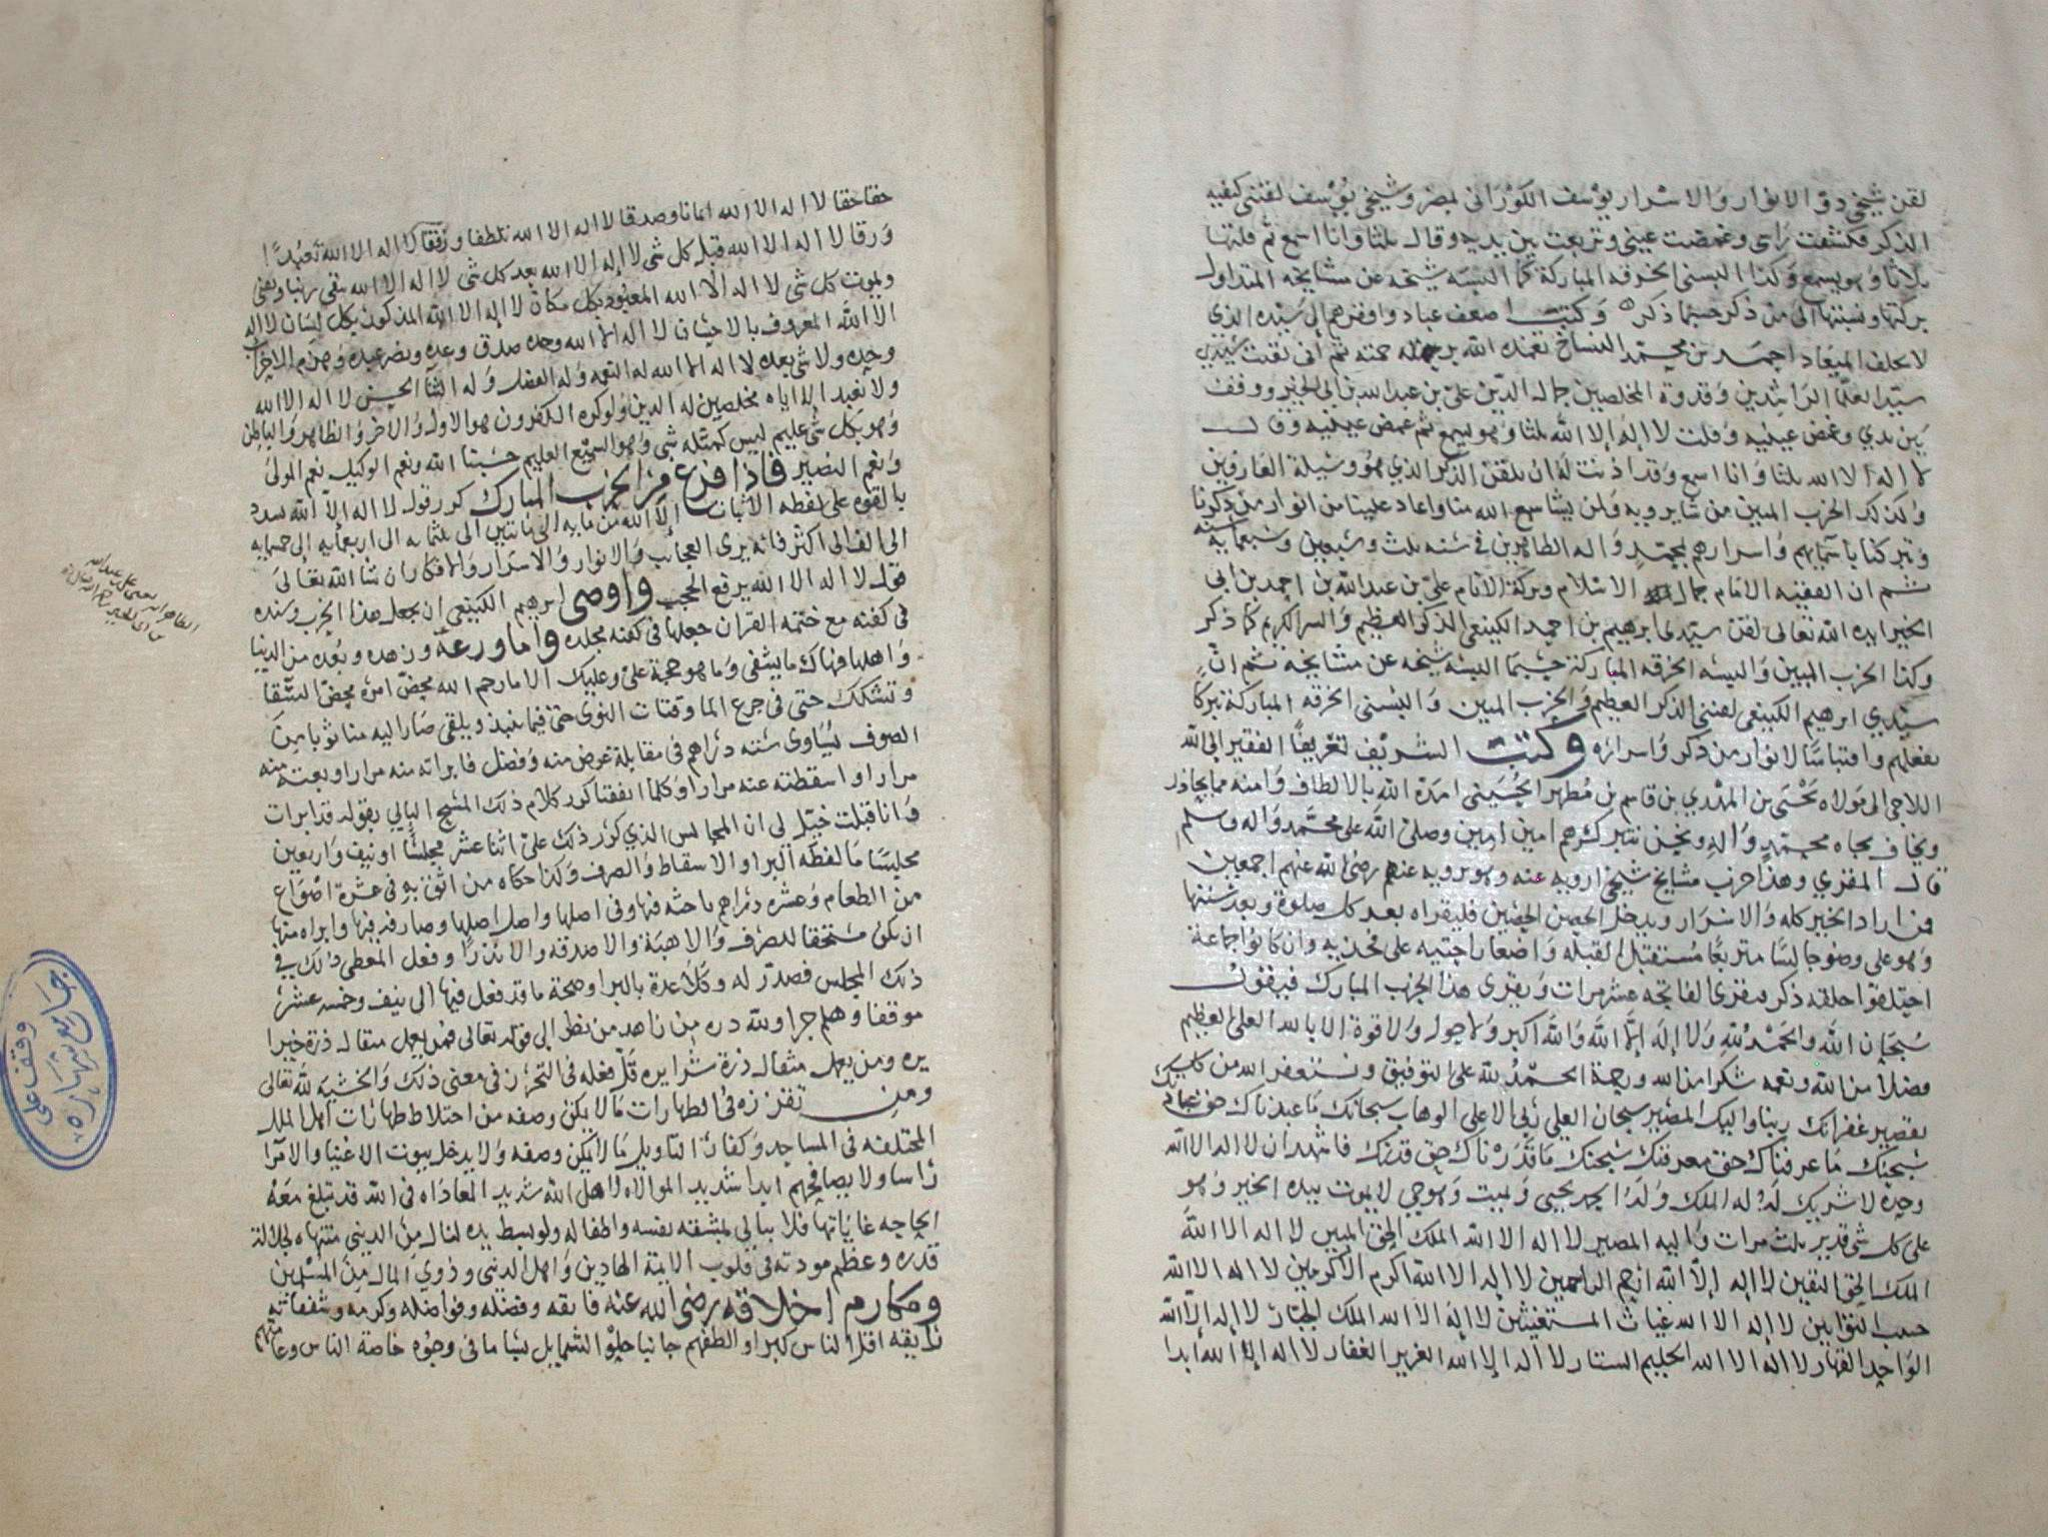 لقن شيخي ذو الانوار والاسرار يوسف الكوراني بمصر وشيخي يوسف لقنني كيفيه
الذكر فكشفت راسي وغمضت عيني وتربعت بين يديه وقال ثلثا وانا اسمع ثم قلتها
ثلاثا وهو يسمع وكذا البسني الخرقه المباركة كما البسه شيخه عن مشايخه المتداول
بركتها ونسبتها الى من ذكر حسبما ذكره وكتب اضعف عباد وافقرهم الى سيده الذي
لا يخلف الميعاد احمد بن محمد النساخ تغمده الله برحمته ثم اني لقنت سيدي
سيد العلما الراشدين وقدوة المخلصين جمال الدين علي بن عبد الله بن ابي الخير ووقف
بين يدي وغمض عينيه وقلت لا اله الا الله ثلثا وهو يسمع ثم غمض عينيه وقال
لا اله الا الله ثلثا وانا اسمع وقد اذنت له ان يلقن الذكر الذي هو وسيلة العارفين
وكذلك الحزب المبين من شا يرويه ولمن يشا سمع الله منا واعاد علينا من انوار من ذكرنا
وتبركنا باسمايهم واسرارهم بمحمد واله الطاهرين في سنه ثلث وسبعين وسبعمايه سنه
ثم ان الفقيه الامام جمال الاسلام وبركة الانام علي بن عبد الله بن احمد بن ابي
الخير ايده الله تعالى لقن سيدي ابرهيم بن احمد الكينعي الذكر العظيم والسر الكريم كما ذكر
وكذا الحزب المبين والبسه الخرقه المباركة حسبما البسه شيخه عن مشايخه ثم ان
سيدي ابرهيم الكينعي لقنني الذكر العظيم والحزب المبين والبسني الخرقه المباركة تبركا
بفعلهم واقتباسا لانوار من ذكر واسراره وكتب الشريف تعريفا الفقير الى الله
اللاجي الى مولاه يحيى بن المهدي بن قاسم بن مطهر الحسيني امده الله بالالطاف وامنه مما يحاذر
ويخاف بجاه محمد واله ونحن نتبرك بذكرهم امين امين وصلى الله على محمد واله وسلم
قال المقري وهذا حزب مشايخ شيخي ارويه عنه وهو يرويه عنهم رضي الله عنهم اجمعين
فمن اراد الخير كله والاسرار ويدخل الحصن الحصين فليقراه بعد كل صلوة وبعد سنتها
وهو على وضو جالسا متربعا مستقبل القبله واضعا راحتيه على فخذيه وان كانوا جماعة
احتلقوا حلقه ذكر فيقرى الفاتحه عشر مرات ويقرى هذا الحزب المبارك فيقول
سبحان الله والحمد لله ولا اله الا الله والله اكبر ولا حول ولا قوة الا بالله العلي العظيم
فضلا من الله ونعمه شكرا من الله ورحمة الحمد لله على التوفيق ونستغفر الله من كل
تقصير غفرانك ربنا واليك المصير سبحان العلي ربي الاعلى الوهاب سبحانك ما عبدناك حق عبادتك
سبحنك ما عرفناك حق معرفتك سبحنك ما قدرناك حق قدرك فاشهد ان لا اله الا الله
وحده لا شريك له له الملك وله الحمد يحيي ويميت وهو حي لا يموت بيده الخير وهو
على كل شي قدير ثلث مرات واليه المصير لا اله الا الله الملك الحق المبين لا اله الا الله
الملك الحق اليقين لا اله الا الله ارحم الراحمين لا اله الا الله اكرم الاكرمين لا اله الا الله
حبيب التوابين لا اله الا الله غياث المستغيثين لا اله الا الله الملك الجبار لا اله الا الله
الواحد القهار لا اله الا الله الحليم الستار لا اله الا الله العزيز الغفار لا اله الا الله ابدا
حقا حقا لا اله الا الله ايمانا وصدقا لا اله الا الله تلطفا ورفقا لا اله الا الله تعبدا
ورقا لا اله الا الله قبل كل شي لا اله الا الله بعد كل شي لا اله الا الله يبقى ربنا ويفنى
ويموت كل شي لا اله الا الله المعبود بكل مكان لا اله الا الله المذكور بكل لسان لا اله
الا الله المعروف بالاحسان لا اله الا الله وحده صدق وعده ونصر عبده وهزم الاحزاب
وحده ولا شي بعده لا اله الا الله له النعمه وله الفضل وله الثنا الحسن لا اله الا الله
ولا نعبد الا اياه مخلصين له الدين ولو كره الكفرون هو الاول والاخر والظاهر والباطن
وهو بكل شي عليم ليس كمثله شي وهو السميع العليم حسبنا الله ونعم الوكيل نعم المولى
ونعم النصير فاذا فرغ من الحزب المبارك كرر قول لا اله الا الله
بالقوه على لفظه الاثبات الا الله من مايه الى مائتين الى ثلثمايه الى اربعمايه الى خمسمايه
الى الف الى اكثر فانه يرى العجايب والانوار والاسرار والافكار ان شا الله تعالى
قول لا اله الا الله يرفع الحجب واوصى ابرهيم الكينعي ان يجعل هذا الحزب وسنده
في كفنه مع ختمه القران جعلها في كفنه مجلده واما ورعه وزهده وبعده من الدنيا
واهلها فهناك ما يشفي وما هو حجة علي وعليك الا ما رحم الله محض امره محض التقا
وتشكك حتى في جرع الما وفتات النوى حتى فيما ينبذ ويلقى صار اليه منا ثوبا من
الصوف يساوي سته دراهم في مقابلة عوض منه وفضل فابراته منه مرارا وبعته منه
مرارا واسقطته عنه مرارا وكلما اتفقنا كرر كلام ذلك المشج البالي بقوله قد ابرات
وانا قبلت خيل لي ان المجالس الذي كرر ذلك على اثنا عشر مجلسا او نيف واربعين
مجلسا ما لفظه البرا والاسقاط والصرف وكذا حكاه من اثق به في عشرة اصواع
من الطعام وعشره دراهم باحثه فيها وفي اصلها واصل اصلها وصارفه فيها وابراه منها
ان يكن مستحقا للصرف والا هبة والا صدقه والا نذرا وفعل المعطي ذلك في
ذلك المجلس فصدر له وكلا عدة بالبرا وصحة ما قد فعل فيها الى نيف وخمسه عشر
موقفا وهلم جرا ولله دره من زاهد من نظر الى قوله تعالى فمن يعمل مثقال ذرة خيرا
يره ومن يعمل مثقال ذرة شرا يره قل فعله في التحرز في معنى ذلك والخشيه لله تعالى
ومن تقززه في الطهارات ما لا يكن وصفه من اختلاط طهارات اهل الملل
المختلفه في المساجد وكفار التاويل ما لا يمكن وصفه ولا يدخل بيوت الاغنيا والامرا
راسا ولا يصافحهم ابدا شديد الموالاه لاهل الله شديد المعاداه في الله قد تبلغ معه
الحاجه غاياتها فلا يبالي بمشقه نفسه واطفاله ولو بسط يده لنال من الدنيى منتهاه لجلالة
قدره وعظم مودته في قلوب الايمة الهادين واهل الدنيى وذوي المال من المسلمين
ومكارم اخلاقه رضي الله عنه فايقه وفضله وفواضله وكرمه وشفقاته
رايقه اقل الناس كبرا والطفهم جانبا حلو الشمايل بشاما في وجوه خاصة الناس وعامتهم
الظاهر انه يعني علي بن عبد الله
بن ابي الخير رحمه الله
وقف على
جامع شهاره